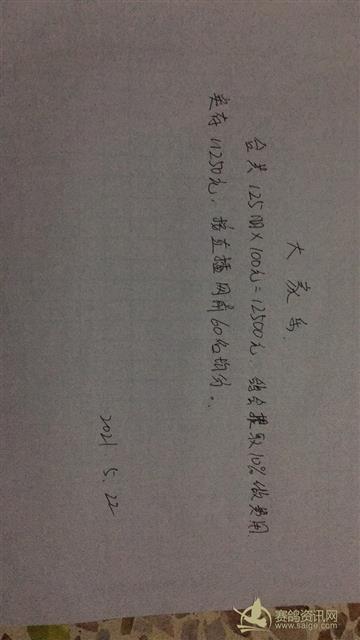 大家乐.
合共125羽×100元=12500元, 会提取10%做费用
实存11250元, 按直播网前60名均分.
2021.5.22
赛鸽资讯网
www.saige.com